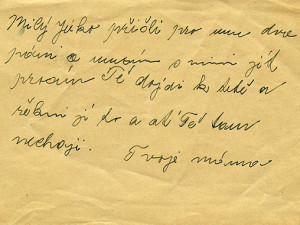 Milý Jirko přišli pro mne dva
páni a musím s nimi jít
prosím Tě dojdi k tetě a
řekni jí to a ať Tě tam
nechají. Tvoje máma